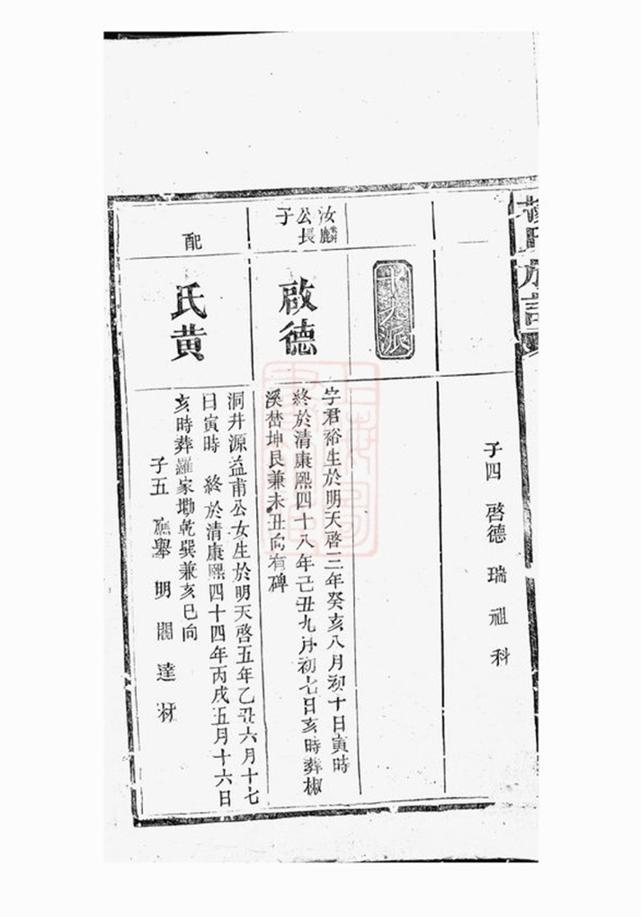 氏族譜
子四 啓德 瑞 祖 科
派
汝麟
公長
子
啟德
字君裕生於明天啓三年癸亥八月初十日寅時
終於清康熙四十八年己丑九月初七日亥時葬椒
溪 坤艮兼未丑向有碑
配
氏黄
洞井源益甫公女生於明天啓五年乙丑六月十七
日寅時 終於清康熙四十四年丙戌五月十六日
亥時葬羅家坳乾巽兼亥巳向
子五 應舉 明 閣 達 材